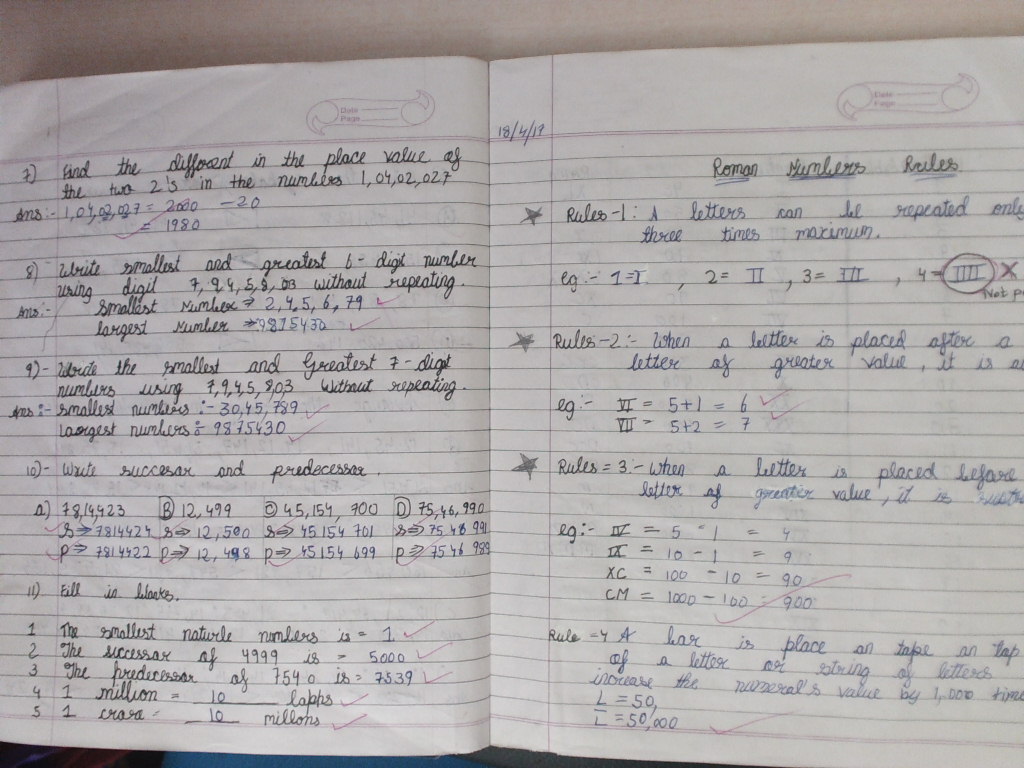 Date
Page
7) Find the different in the place value of
the two 2's in the numbers 1,04,02,027
Ans:- 1,04,02,027 = 2000 - 20
= 1980
8) Write smallest and greatest 6-digit number
using digit 7,9,4,5,8,03 without repeating.
Ans:- Smallest number ⇒ 2,4,5,6,79
largest number ⇒ 9875430
9)- Write the smallest and Greatest 7-digit
numbers using 7,9,4,5,8,03 Without repeating.
Ans:- smallest numbers :- 30,45,789
largest numbers :- 9875430
10)- Write succesar and predecessar.
a) 78,14423 (B) 12,499 (C) 45,154,900 (D) 75,46,990
S⇒ 7814424 S⇒ 12,500 S⇒ 45154701 S⇒ 7546991
P⇒ 7814422 P⇒ 12,498 P⇒ 45154699 P⇒ 7546989
11) Fill is blacks.
1 The smallest naturle numbers is = 1
2 The successar of 4999 is = 5000
3 The predecessar of 7540 is = 7539
4 1 million = 10 laphs
5 1 crara = 10 millons
Date
Page
18/4/17
Roman Numbers Rules
Rules-1: A letters can be repeated only
three times maximum.
eg:- 1=I , 2= II , 3= III , 4= IIII X
Not
Rules-2:- When a letter is placed after a
letter of greater value, it is
eg:- VI = 5+1 = 6
VII = 5+2 = 7
Rules = 3:- When a letter is placed before
letter of greater value, it is
eg:- IV = 5 - 1 = 4
IX = 10 - 1 = 9
XC = 100 - 10 = 90
CM = 1000 - 100 = 900
Rule = 4 A bar is place an tape an tap
of a letter or string of letters
increase the numeral's value by 1,000 time
L = 50,
L̅ = 50,000